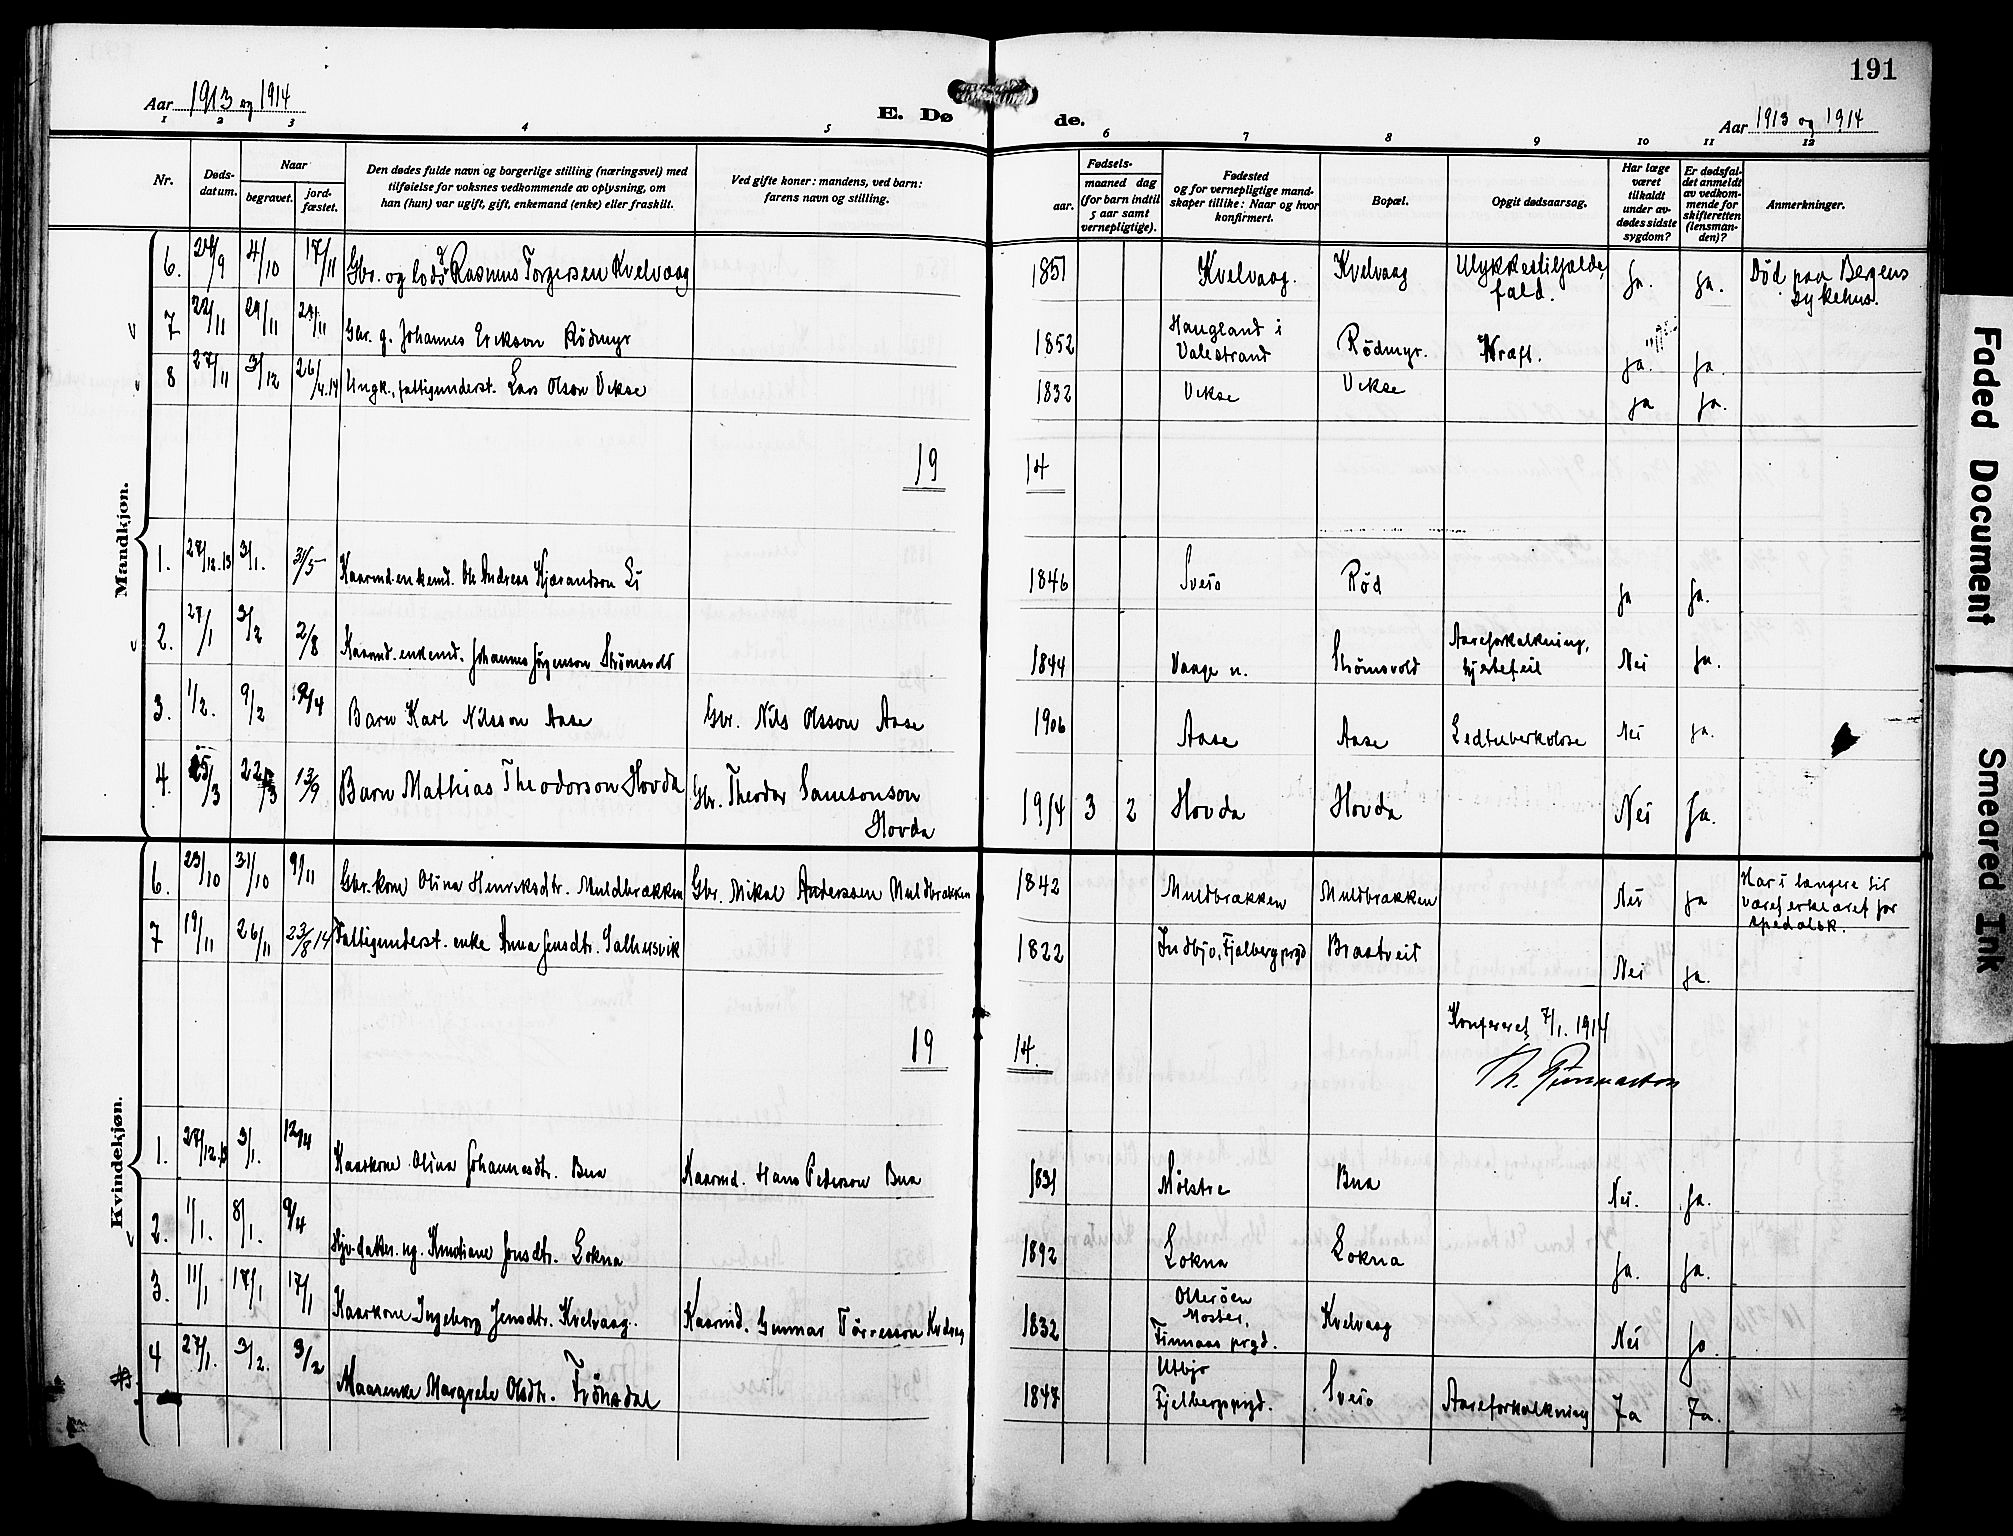 191
Aar 1913 og 1914
E. Døde.
Aar 1913 og 1914
1 2 3 4 5 6 7 8 9 10 11 12
Nr.
Døds-
datum.
Naar
begravet.
jord-
fæstet.
Den dødes fulde navn og borgerlige stilling (næringsvei) med
tilføielse for voksnes vedkommende av oplysning, om
han (hun) var ugift, gift, enkemand (enke) eller fraskilt.
Ved gifte koner: mandens, ved barn:
farens navn og stilling.
Fødsels-
aar.
maaned dag
(for barn indtil
5 aar samt
vernepligtige).
Fødested
og for vernepligtige mand-
skaper tillike: Naar og hvor
konfirmert.
Bopæl.
Opgit dødsaarsag.
Har læge
været
tilkaldt
under av-
dødes sidste
sygdom?
Er dødsfal-
det anmeldt
av vedkom-
mende for
skifteretten
(lensman-
den)?
Anmerkninger.
Mandkjøn.
6. 24/9 4/10 17/11 Gbr. og lods Rasmus Torgersen Kvelvaag 1851 Kvelvaag. Kvelvaag Ulykkestilfælde, fald. Ja. Ja. Død paa Bergens sykehus.
7 22/11 29/11 29/11 Gbr. g. Johannes Erikson Rödmyr 1852 Haugland i Valestrand Rödmyr. Kræft. Ja. Ja.
8 27/11 3/12 26/4.14 Ungk., fattigunderst. Lars Olson Vikse 1832 Vikse Vikse Ja Ja.
19 14
1. 28/12.13 3/1. 31/5 Kaarmd. enkemd. Ole Andreas Kjærandson Li 1846 Sveio Rød Ja Ja.
2. 27/1 3/2 2/8 Kaarmd. enkemd. Johannes Jørgenson Strømsvold 1844 Vaage n. Strömsvold Aareforkalkning, hjertefeil Nei Ja.
3. 1/2. 9/2 19/4 Barn Karl Nilsson Aase Gbr. Nils Olsson Aase 1906 Aase Aase Ledtuberkolose Nei Ja.
4. 15/3 22/3 13/9 Barn Mathias Theodorson Hovda Gbr. Theodor Samsonson Hovda 1914 3 2 Hovda Hovda Nei Ja.
Kvindekjøn.
6. 23/10 31/10 9/11 Gbr. kone Olina Henriksdtr. Muldbrækken Gbr. Mikal Anderssen Muldbrækken 1842 Muldbrækken Muldbrækken Nei Ja Har i længere tid været erklæret for spedalsk.
7 19/11 26/11 23/8 14 Fattigunderst. enke Anna Jensdtr. Salhusvik 1822 Indbjo, Fjelberg prgd Braatveit Nei Ja.
Konfereret 7/1. 1914
19 14.
1. 27/12.13 3/1. 12/4 Kaarkone Olina Johannesdtr. Bua Kaarmd. Hans Peterson Bua 1831 Mölstre Bua Nei. Ja.
2. 1/1. 8/1. 9/4 Hjv. datter. ug. Knudiane Jonsdtr. Lokna 1892 Lokna Lokna Ja. Ja.
3. 11/1 17/1 17/1 Kaarkone Ingeborg Jensdtr. Kvelvaag. Kaarmd. Gunnar Törresson Kvelvag 1832 Otteröen Moster, Finnaas prgd. Kvelvaag Nei Ja
4 27/1. 3/2. 3/2 Kaarenke Margrete Olsdtr. Frönsdal 1847 Utbjo Fjelbergsprgd. Sveio Aareforkalkning Ja Ja.
Faded Document
Smeared Ink